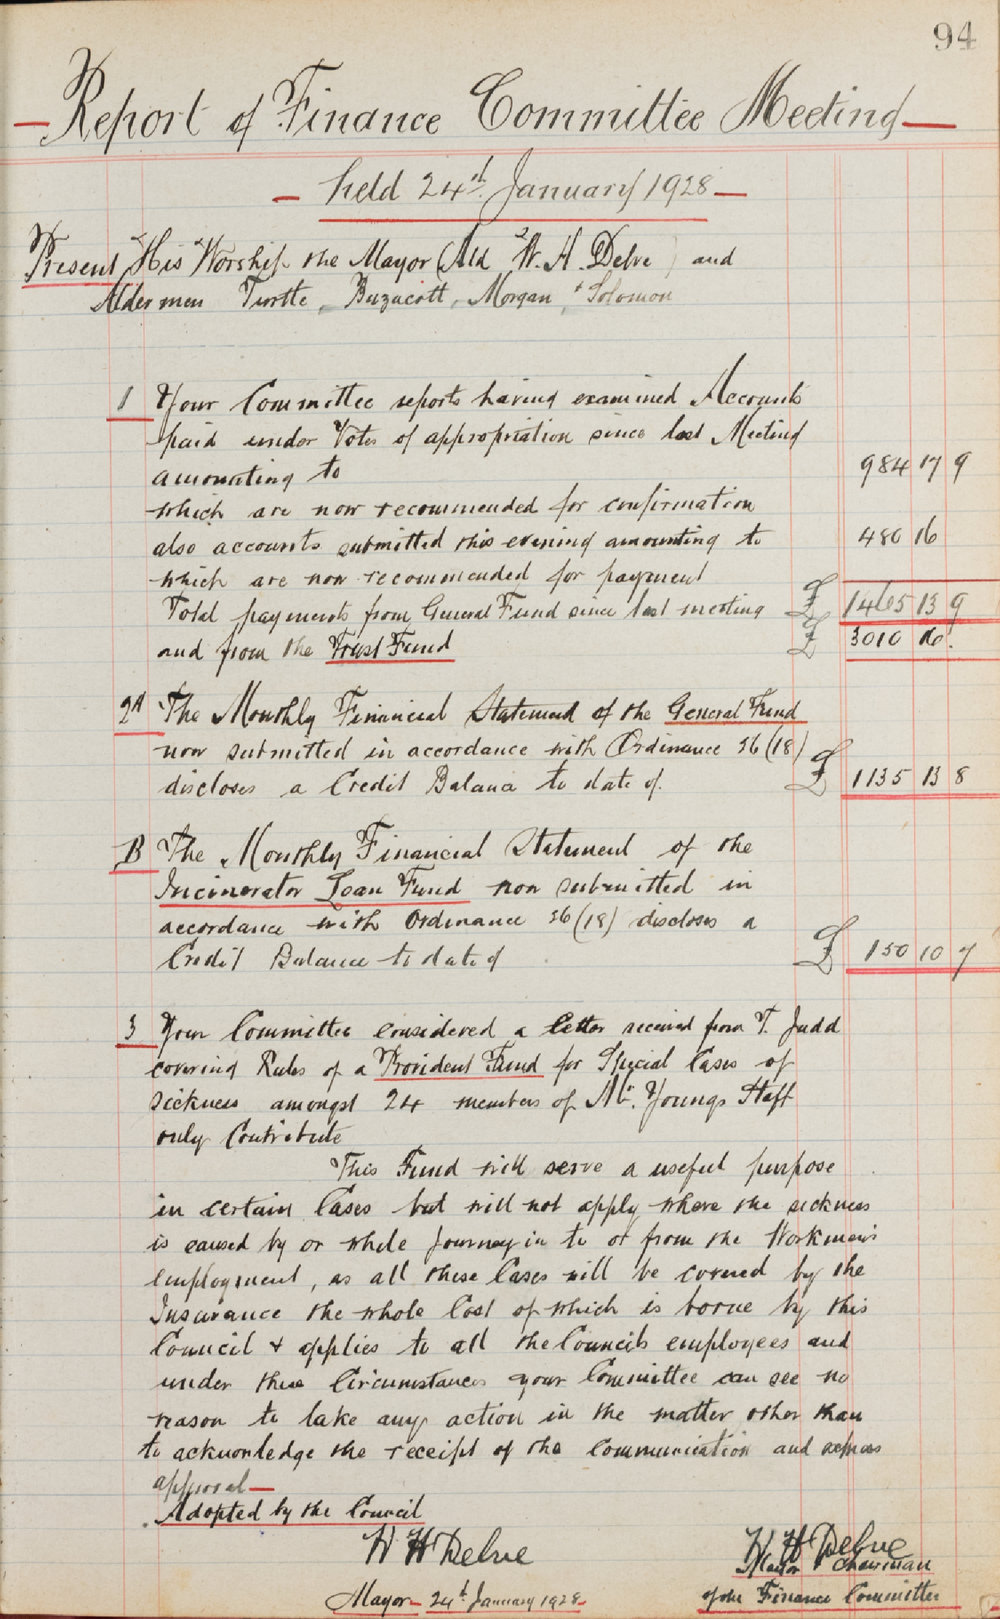 94
Report of Finance Committee Meeting
held 24th January 1928
Present His Worship the Mayor (Ald W. H. Delve) and
Aldermen Turtle, Buzacott, Morgan, + Solomon
1 Your Committee reports having examined Accounts
paid under Votes of appropriation since last Meeting
amounting to 984 17 9
which are now recommended for confirmation
also accounts submitted this evening amounting to 480 16
which are now recommended for payment
Total payments from General Fund since last meeting £ 1465 13 9
and from the Trust Fund £ 3010 16.
2A The Monthly Financial Statement of the General Fund
now submitted in accordance with Ordinance 36 (18)
discloses a Credit Balance to date of. £ 1135 13 8
B The Monthly Financial Statement of the
Incinerator Loan Fund now submitted in
accordance with Ordinance 36 (18) discloses a
Credit Balance to date of £ 150 10 7
3 Your Committee considered a letter received from T. Judd
covering Rules of a Provident Fund for Special Cases of
sickness amongst 24 members of Mr. Youngs Staff
only Contribute
This Fund will serve a useful purpose
in certain Cases but will not apply where the sickness
is caused by or while Journeyin to or from the Workmen's
employment, as all these Cases will be covered by the
Insurance the whole Cost of which is borne by this
Council + applies to all the Councils employees and
under these Circumstances your Committee can see no
reason to take any action in the matter other than
to acknowledge the receipt of the Communication and express
approval—
Adopted by the Council
W H Delve
Mayor 24th January 1928
W H Delve
Mayor + Chairman
of the Finance Committee